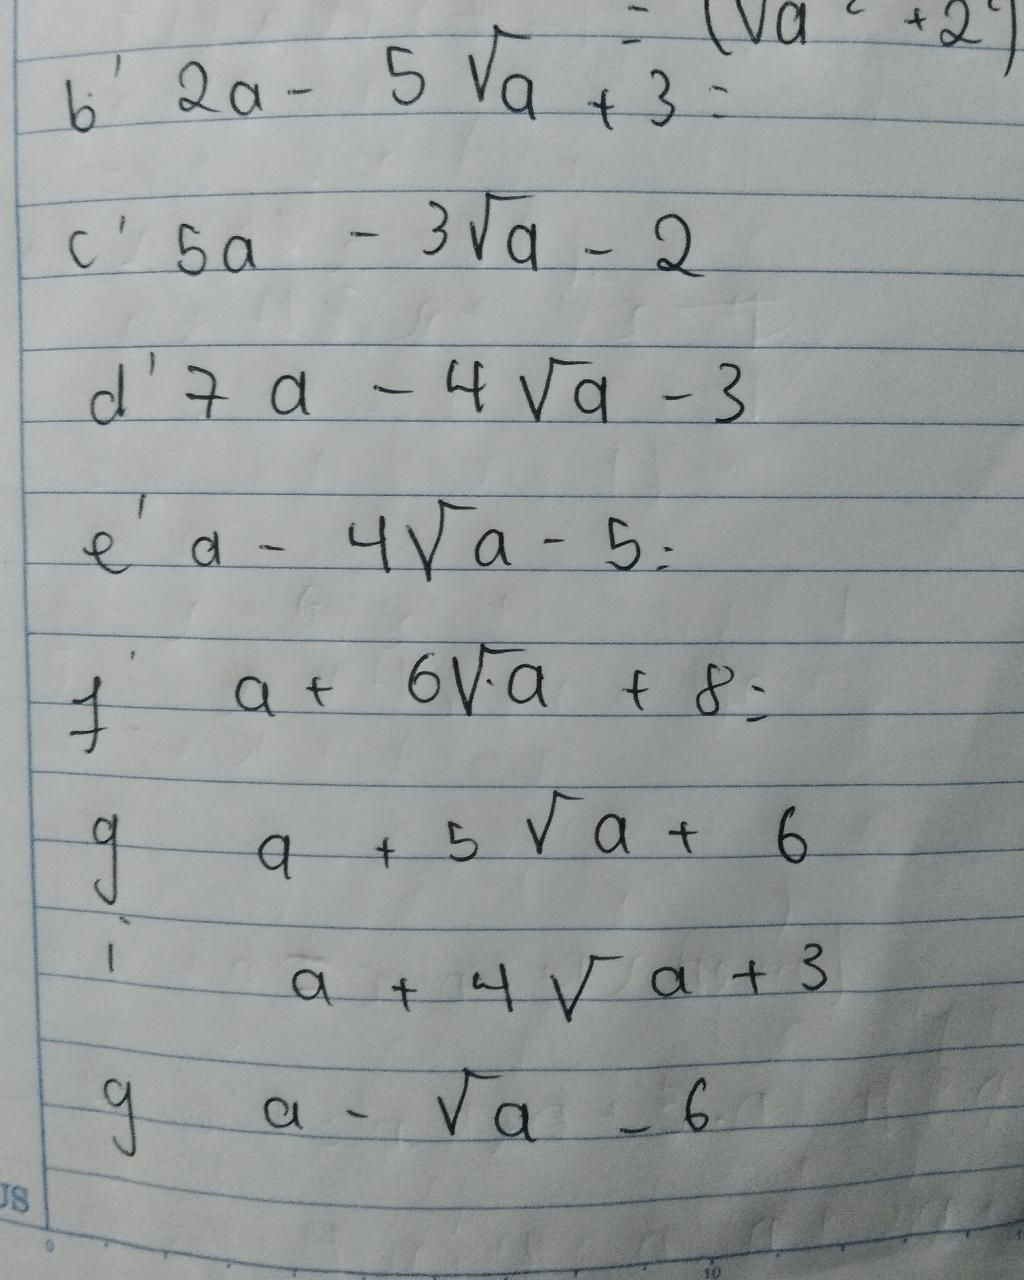 = (√a² + 2²)
b' 2a - 5√a + 3 =
c' 5a - 3√a - 2
d' 7a - 4√a - 3
e' a - 4√a - 5 =
f' a + 6√a + 8 =
g a + 5√a + 6
i a + 4√a + 3
g a - √a - 6
US
0 10